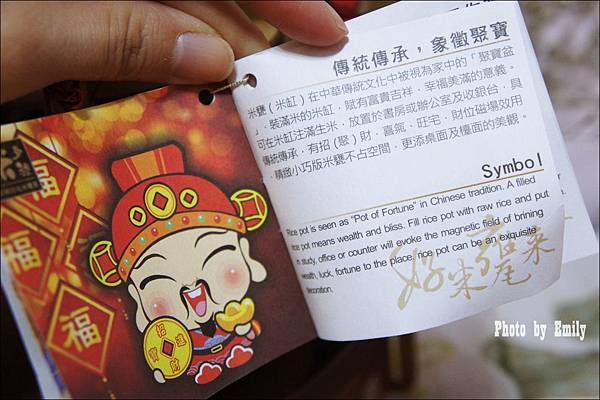 傳統傳承，象徵聚寶
米甕（米缸）在中華傳統文化中被視為家中的「聚寶盆
」，裝滿米的米缸，賦有富貴吉祥，幸福美滿的意義。
可在米缸注滿生米，放置於書房或辦公室及收銀台，具
傳統傳承，有招（聚）財，喜氣，旺宅，財位磁場效用
，精緻小巧版米甕不占空間，更添桌面及檯面的美觀。
Symbol
Rice pot is seen as “Pot of Fortune” in Chinese tradition. A filled
rice pot means wealth and bliss. Fill rice pot with raw rice and put
in study, office or counter will evoke the magnetic field of brining
wealth, luck, fortune to the place. rice pot can be an exquisite
decoration.
好米甕來
福
福
福
招財進寶
Photo by Emily